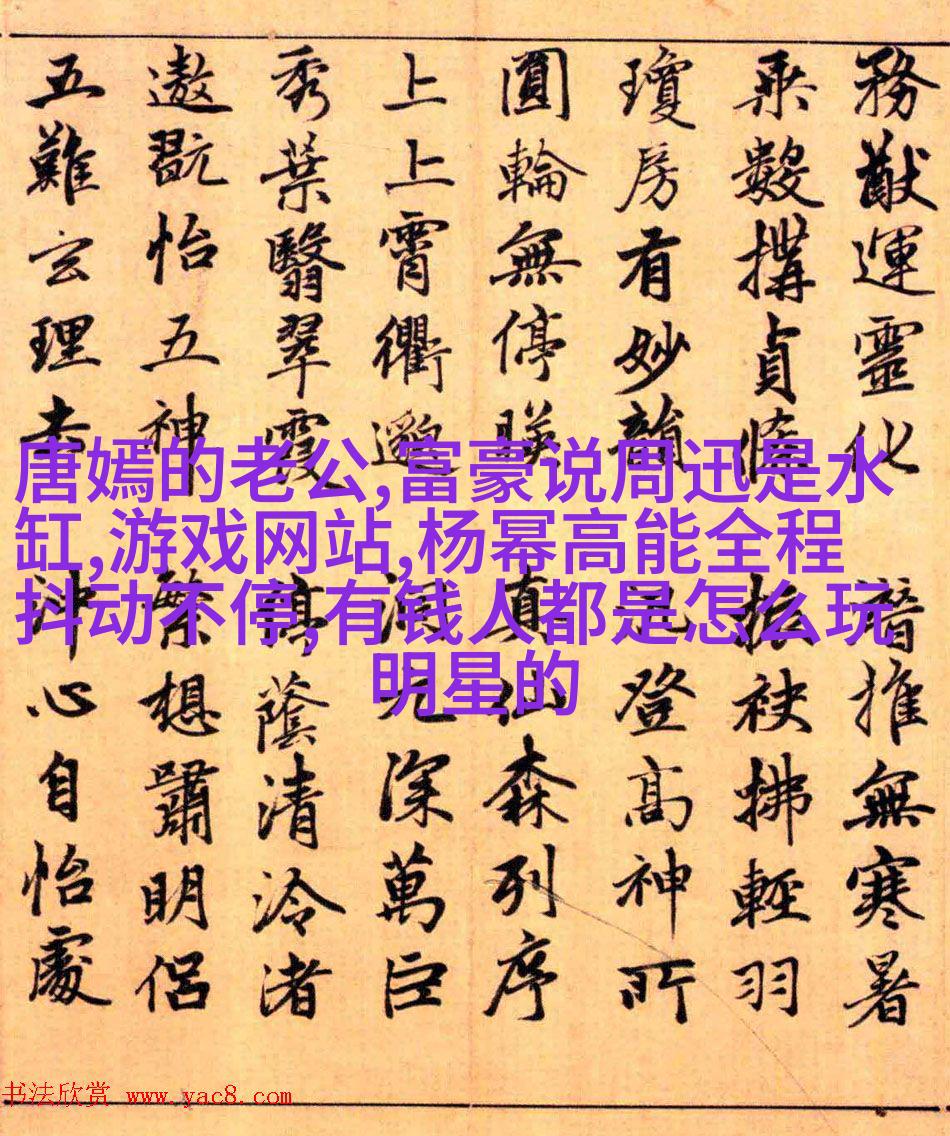 務猷運靈化潛推無寒暑
乘數搆貞條振袂拂輕羽
瓊房有妙韻足登高神所
圓輪無停暎真仙森列序
上上霄衢邈洞元深萬巨
秀葉翳翠霞停蔭清泠渚
遨翫怡五神繁想嘯明侶
五難玄理去沖心自怡處
唐嫣的老公,富豪说周迅是水
缸,游戏网站,杨幂高能全程
抖动不停,有钱人都是怎么玩
明星的
书法欣赏 www.yac8.com